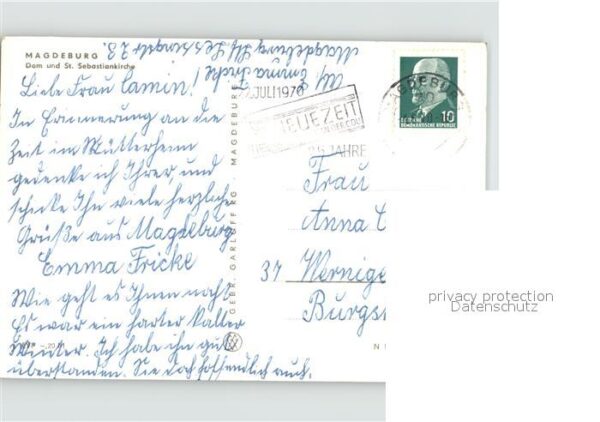 MAGDEBURG
Dom und St. Sebastiankirche
Liebe Frau Camin!
In Erinnerung an die
Zeit im Mütterheim
gedenke ich Ihrer und
schicke Ihn viele herzliche
Grüße aus Magdeburg
Emma Fricke
Wie geht es Ihnen
Es war ein harter kalter
Winter. Ich habe ihn gut
überstanden. Sie doch hoffentlich auch.
Emma Fricke
Magdeburg
GEBR. GARLOFF KG · MAGDEBURG
JULI 1970
NEUE ZEIT
25 JAHRE
DEUTSCHE
DEMOKRATISCHE REPUBLIK
10
Frau
Anna C
37 Wernige
Burgs
privacy protection
Datenschutz